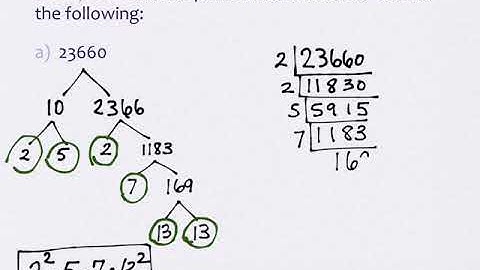 the following:
a) 23660
10 2366
2 5 2 1183
7 169
13 13
2 23660
2 11830
5 5915
7 1183